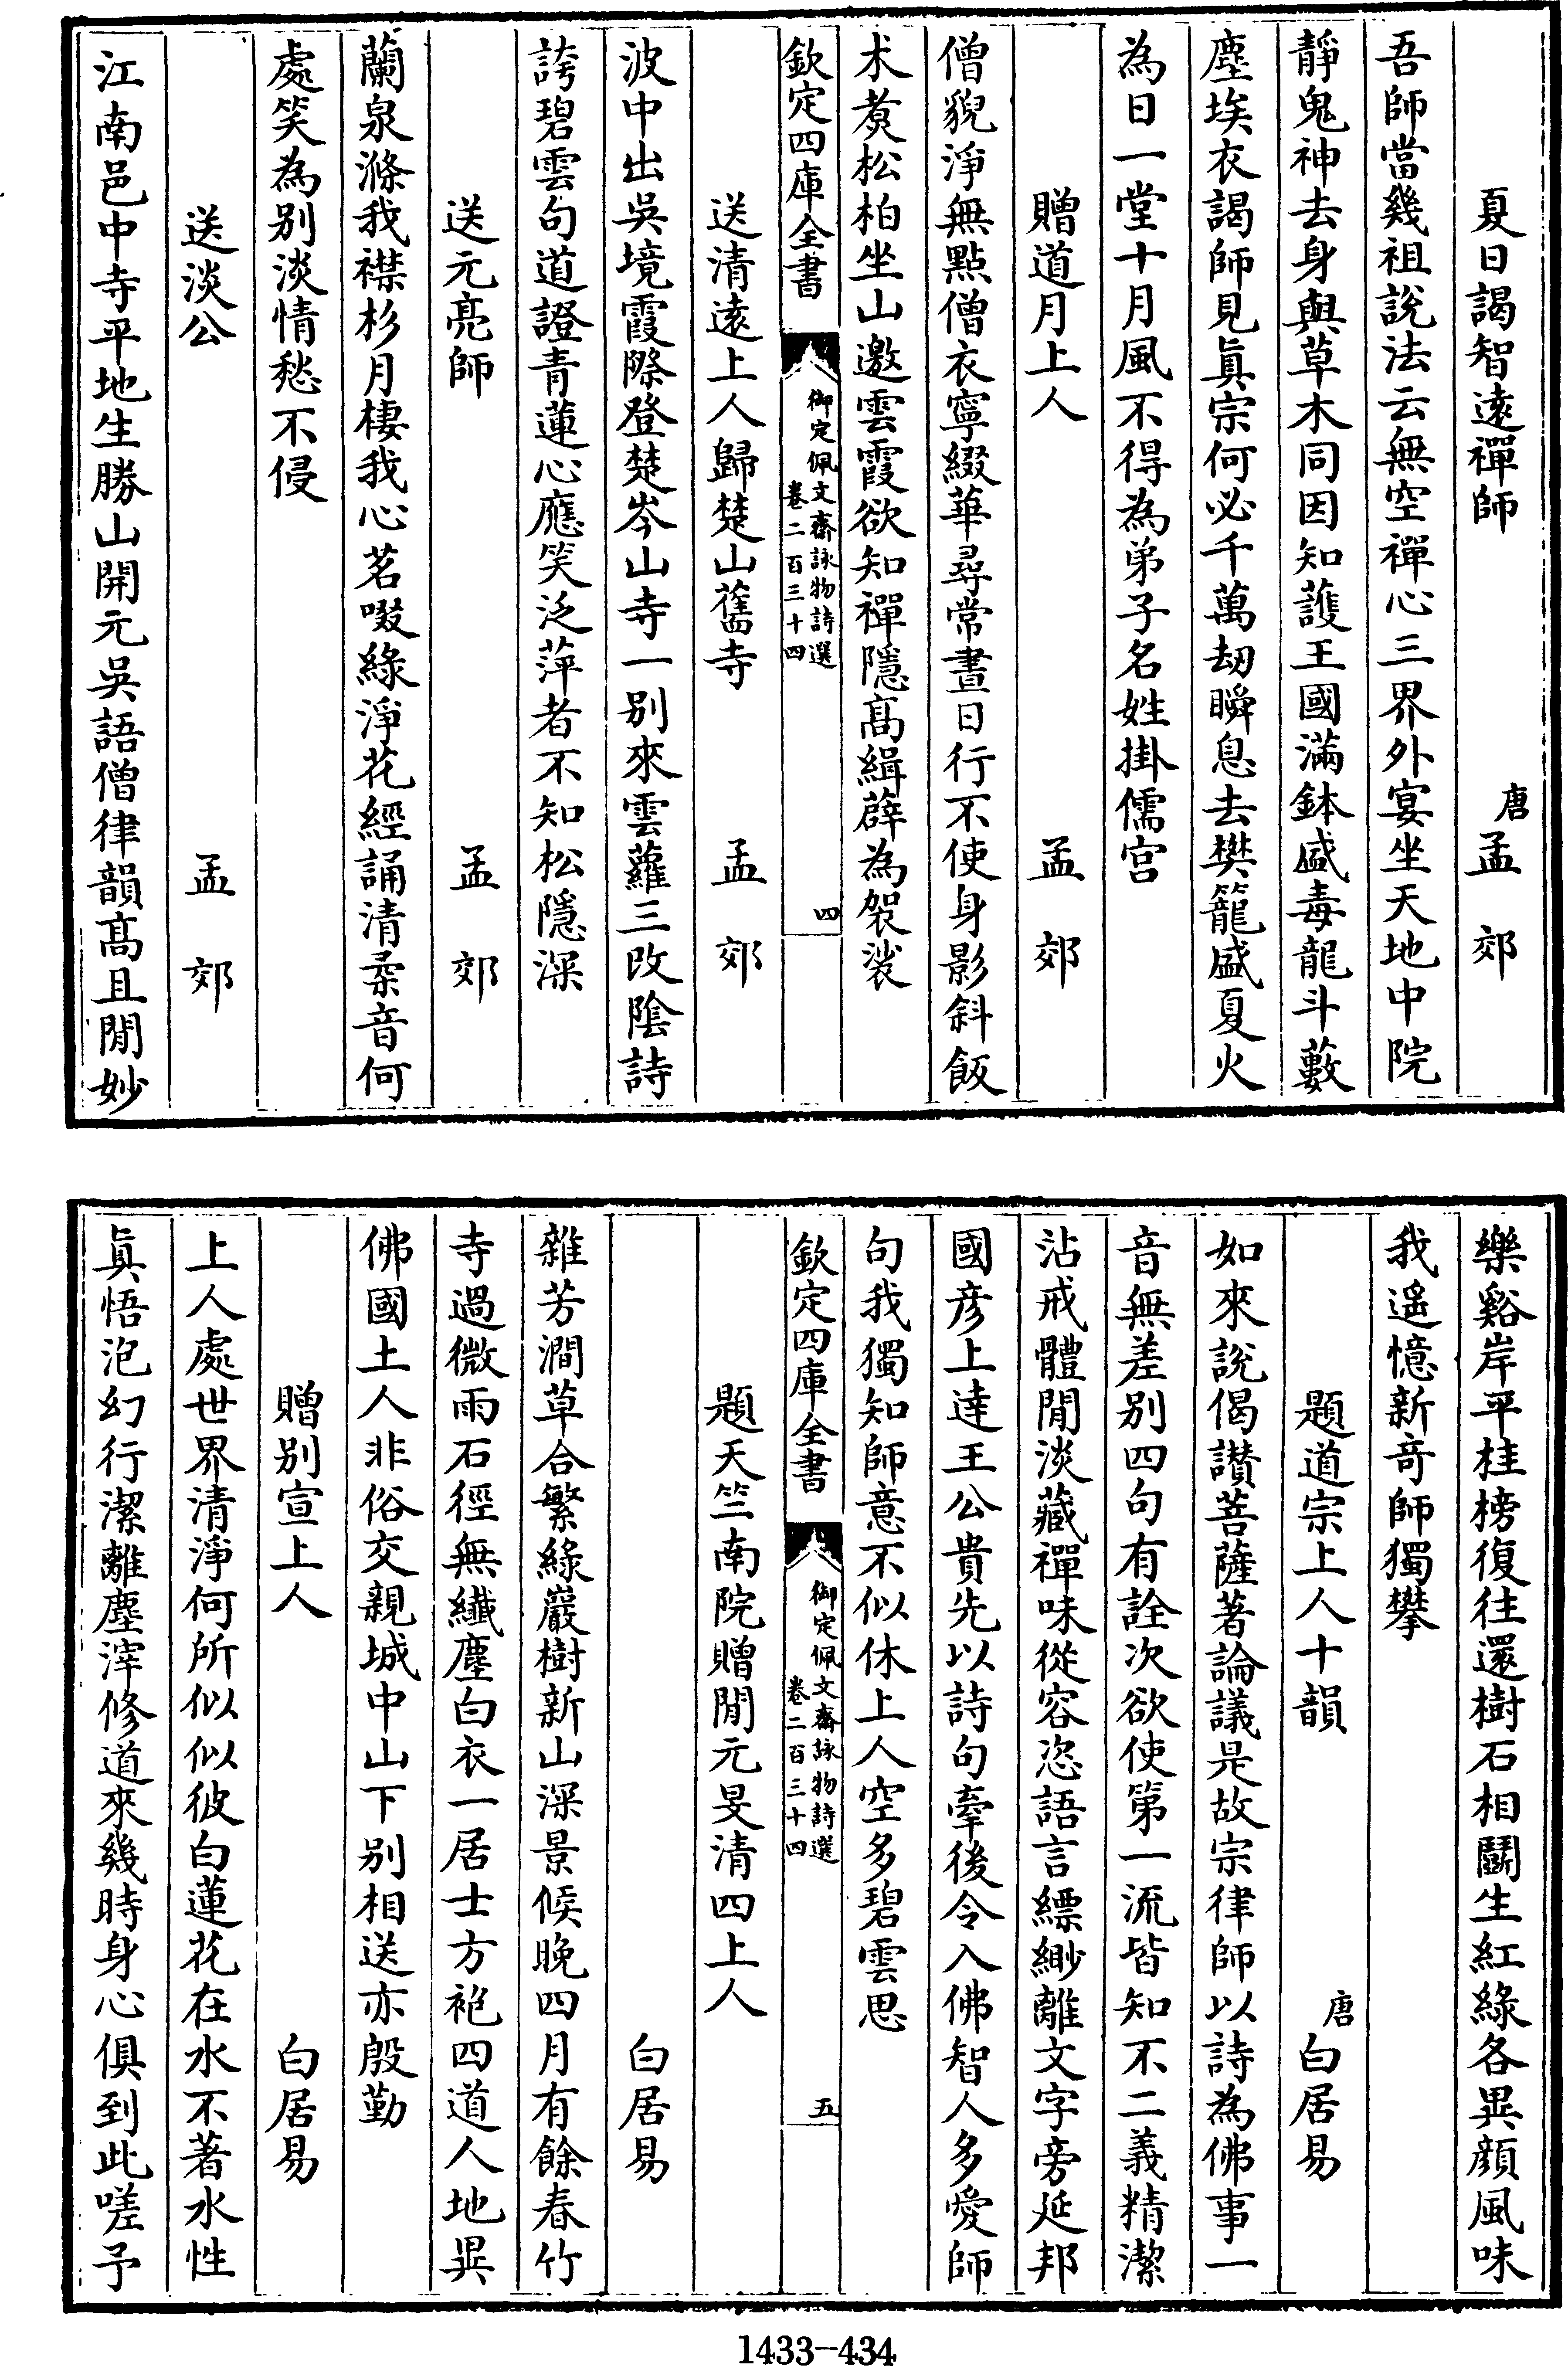 夏日謁智遠禪師　唐孟郊
吾師當幾祖說法云無空禪心三界外宴坐天地中院
靜鬼神去身與草木同因知護王國滿鉢盛毒龍斗藪
塵埃衣謁師見眞宗何必千萬劫瞬息去樊籠盛夏火
為日一堂十月風不得為弟子名姓掛儒宫
贈道月上人　孟郊
僧貌淨無點僧衣寧綴華尋常晝日行不使身影斜飯
术煑松柏坐山邀雲霞欲知禪隱髙緝薜為袈裟
欽定四庫全書　御定佩文齋詠物詩選　卷二百三十四　四
送清遠上人歸楚山舊寺　孟郊
波中出吳境霞際登楚岑山寺一别來雲蘿三改陰詩
誇碧雲句道證青蓮心應笑泛萍者不知松隱深
送元亮師　孟郊
蘭泉滌我襟杉月棲我心茗啜綠淨花經誦清柔音何
處笑為别淡情愁不侵
送淡公　孟郊
江南邑中寺平地生勝山開元吳語僧律韻髙且閒妙
樂谿岸平桂榜復往還樹石相鬭生紅綠各異顔風味
我遥憶新竒師獨攀
題道宗上人十韻　唐白居易
如來說偈讃菩薩著論議是故宗律師以詩為佛事一
音無差别四句有詮次欲使第一流皆知不二義精潔
沾戒體閒淡藏禪味從容恣語言縹緲離文字旁延邦
國彦上逹王公貴先以詩句牽後令入佛智人多愛師
句我獨知師意不似休上人空多碧雲思
欽定四庫全書　御定佩文齋詠物詩選　卷二百三十四　五
題天竺南院贈閒元旻清四上人
白居易
雜芳澗草合繁綠巖樹新山深景候晚四月有餘春竹
寺過微雨石徑無纖塵白衣一居士方袍四道人地異
佛國土人非俗交親城中山下别相送亦殷勤
贈别宣上人　白居易
上人處世界清淨何所似似彼白蓮花在水不著水性
眞悟泡幻行潔離塵滓修道來幾時身心俱到此嗟予
1433-434